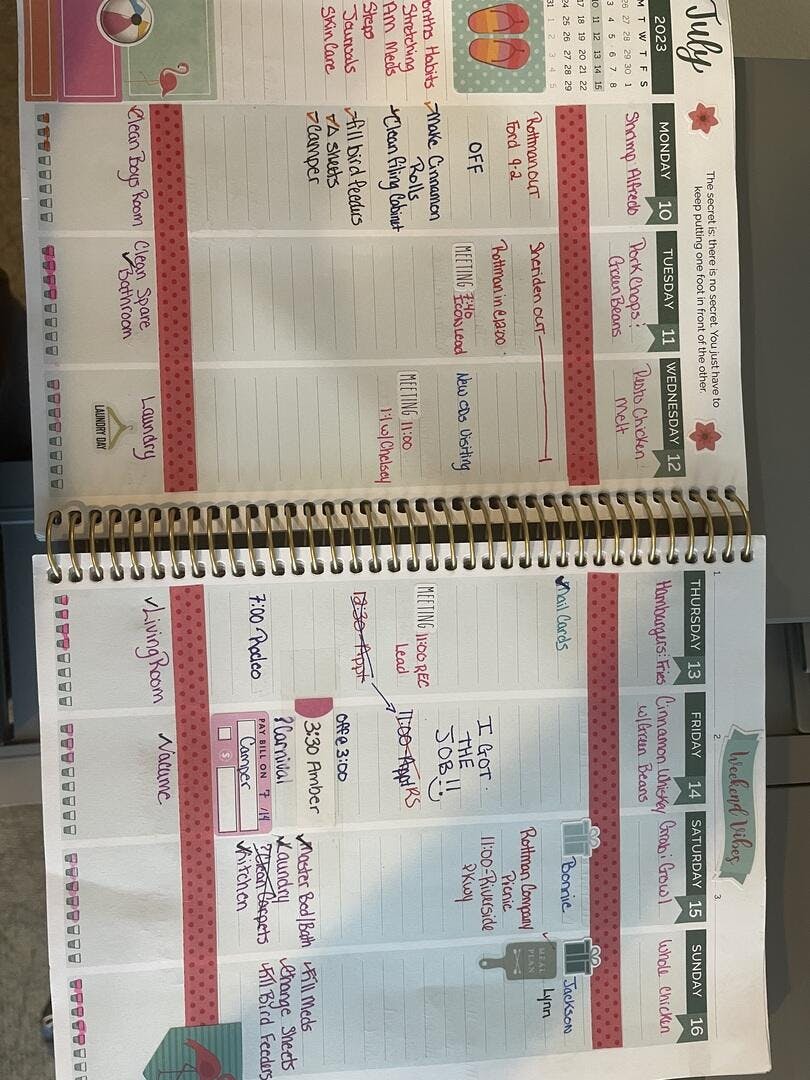 July
The secret is: there is no secret. You just have to
keep putting one foot in front of the other.
2023
M T W T F S
26 27 28 29 30 1
3 4 5 6 7 8
10 11 12 13 14 15
17 18 19 20 21 22
24 25 26 27 28 29
31 1 2 3 4 5
onths Habits
Stretching
Am Meds
Steps
Journals
Skin Care
MONDAY 10
Shrimp Alfredo
Rottman OUT
Ford 9-2
OFF
Make Cinnamon
Rolls
Clean Filing Cabinet
fill bird feeders
Δ sheets
camper
Clean Boys Room
TUESDAY 11
Pork Chops:
Green Beans
Sheriden OUT
Rottman in @ 1200
MEETING 7:40
Lead
Clean Spare
Bathroom
WEDNESDAY 12
Pesto Chicken
Melt
New CDs Visiting
MEETING 11:00
1:1 w/Chelsey
Laundry
LAUNDRY DAY
1.
THURSDAY 13
Hamburgers: Fries
Mail Cards
MEETING 11:00 REC
Lead
12:30 Appt
7:00 Rodeo
Living Room
2.
Weekend Vibes
FRIDAY 14
Cinnamon Whiskey
w/Green Beans
I GOT
THE
JOB!!
11:00 Appt RS
Off @ 3:00
3:30 Amber
?Carnival
PAY BILL ON 7/14
Camper
$
Vacume
3.
SATURDAY 15
Grab: Growl
Bonnie
Rottman Company
Picnic
11:00-Riverside
PKwy
Master Bed/Bath
Laundry
?Clean Carpets
Kitchen
SUNDAY 16
Whole Chicken
Jackson
Lynn
MEAL
PLAN
Fill Meds
Change Sheets
Fill Bird Feeders